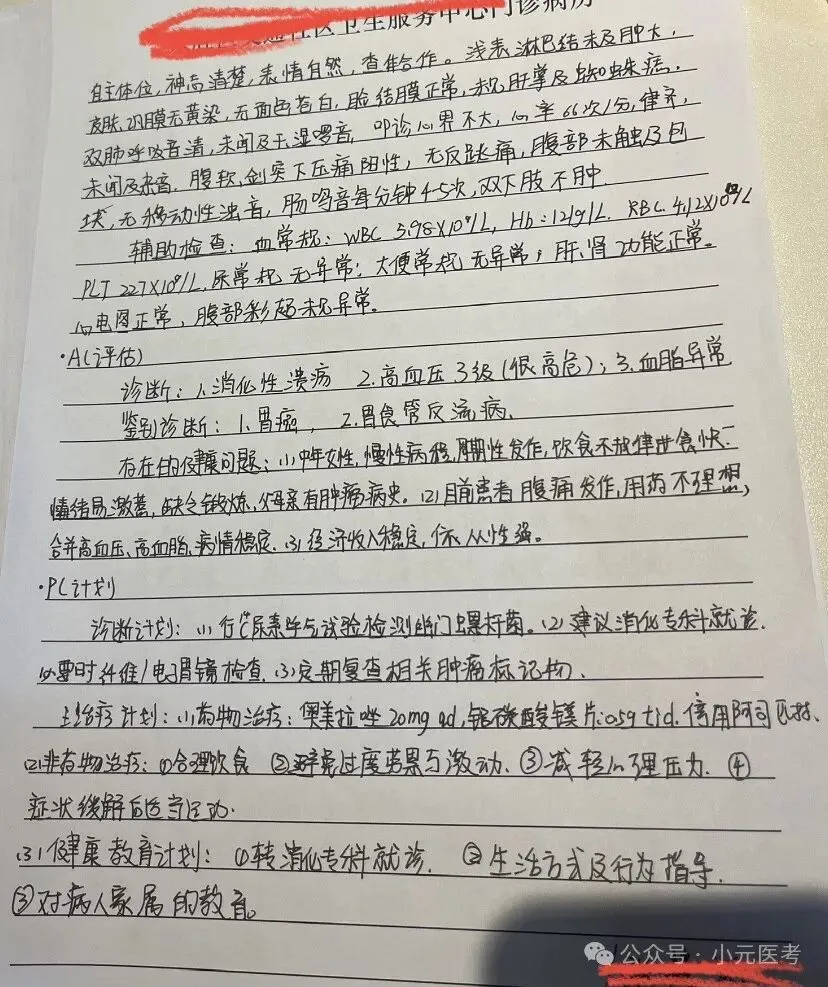 社区卫生服务中心门诊病历
自主体位,神志清楚,表情自然,查体合作。浅表淋巴结未及肿大,
皮肤、巩膜无黄染,无面色苍白,睑结膜正常,未见肝掌及蜘蛛痣,
双肺呼吸音清,未闻及干湿啰音,叩诊心界不大,心率66次/分,律齐,
未闻及杂音,腹软,剑突下压痛阳性,无反跳痛,腹部未触及包
块,无移动性浊音,肠鸣音每分钟4-5次,双下肢不肿.
辅助检查:血常规:WBC 5.98X10⁹/L, Hb:121g/L. RBC. 4.12X10/L
PLT 227X10⁹/L,尿常规无异常;大便常规无异常;肝、肾功能正常。
心电图正常、腹部彩超未见异常。
·A(评估)
诊断:1.消化性溃疡 2.高血压3级(很高危);3.血脂异常
鉴别诊断:1.胃癌, 2.胃食管反流病.
存在的健康问题:(1)中年女性,慢性病程,周期性发作,饮食不规律进食快.
情绪易激惹,缺乏锻炼,父母亲有肿瘤病史。(2)目前患者腹痛发作,用药不理想,
合并高血压、高血脂,病情稳定.(3)经济收入稳定,依从性强。
·P(计划)
诊断计划:(1)行¹³C尿素呼气试验检测幽门螺杆菌。(2)建议消化专科就诊.
必要时纤维/电子胃镜检查.(3)定期复查相关肿瘤标记物.
治疗计划:(1)药物治疗:奥美拉唑20mg qd,铝碳酸镁片0.5g tid.停用阿司匹林.
(2)非药物治疗:①合理饮食 ②避免过度劳累与激动.③减轻心理压力.④
症状缓解后适当运动.
(3)健康教育计划:①转消化专科就诊. ②生活方式及行为指导.
③对病人家属的教育。
公众号·小元医考